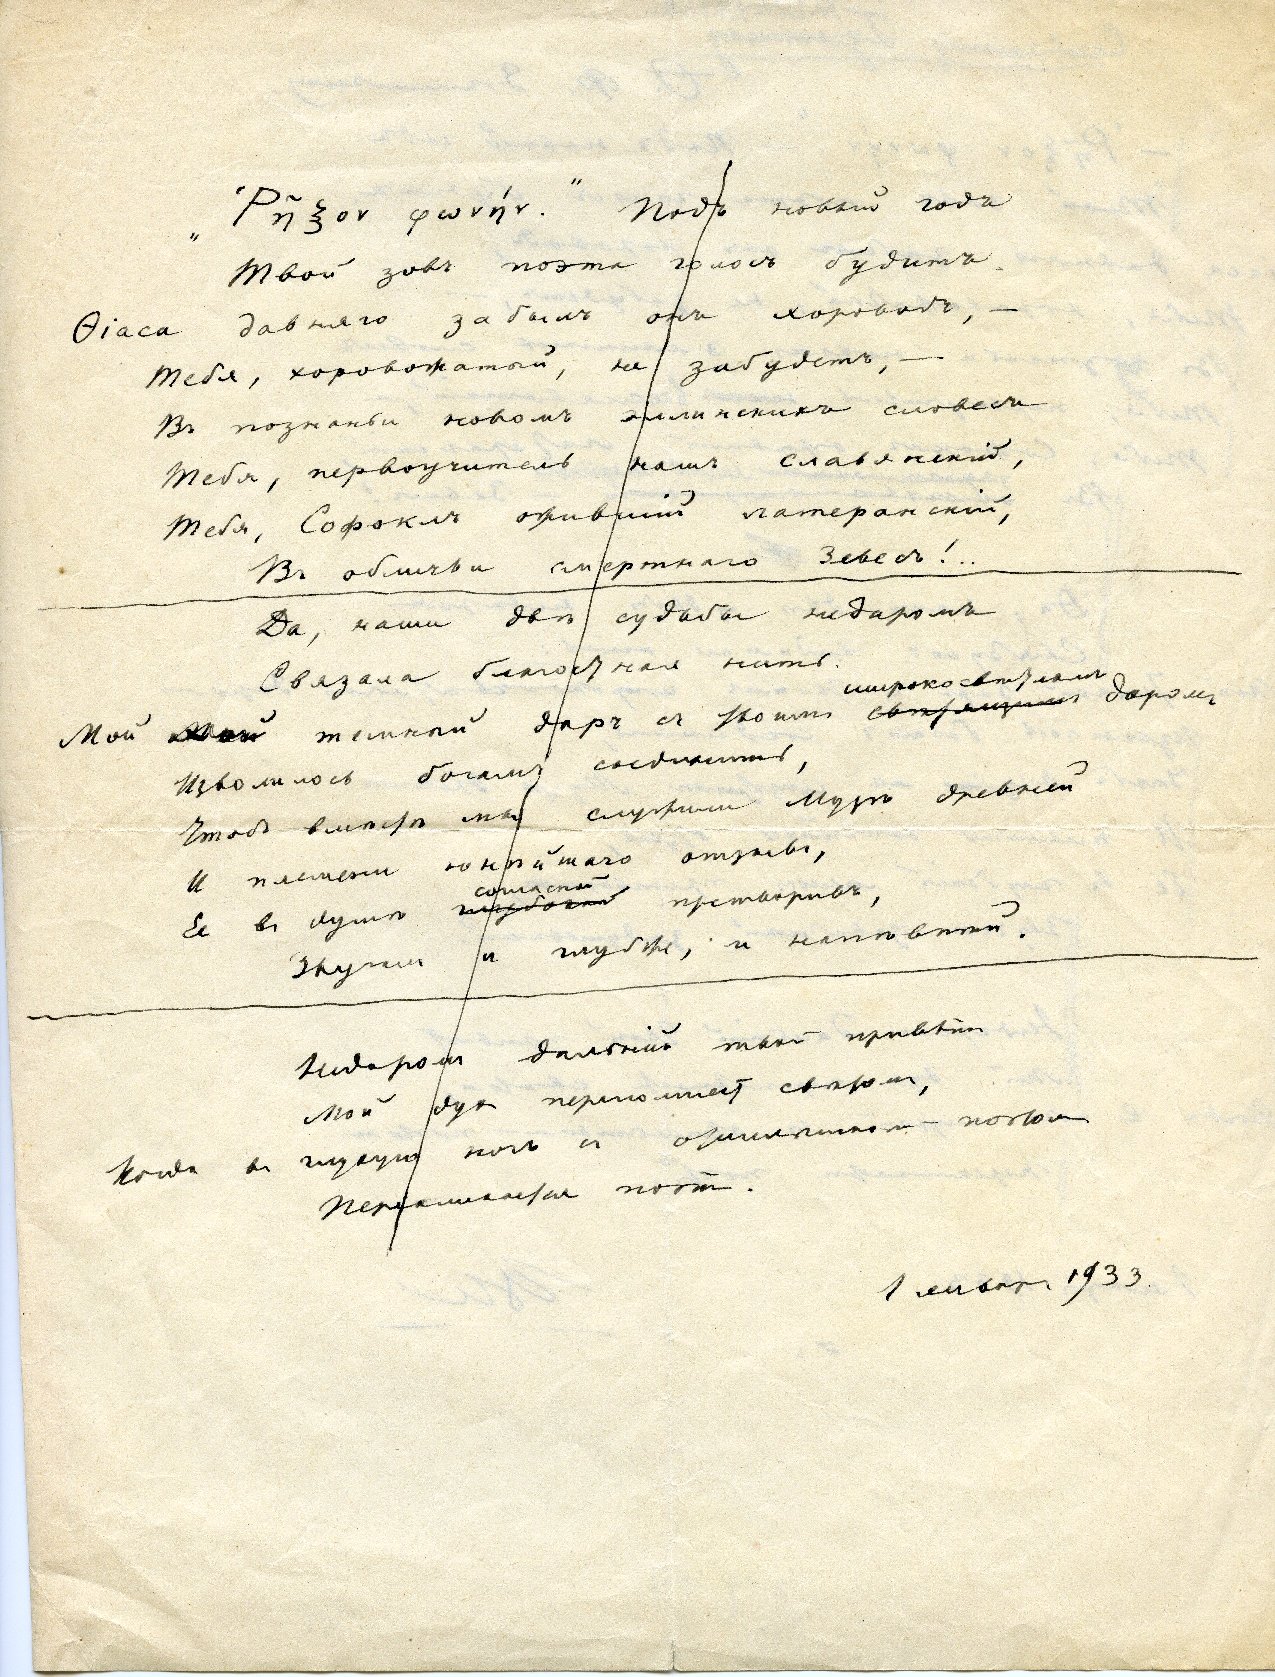 „Ῥῆξον φωνήν.“ Подъ новый годъ
Твой зовъ поэта голосъ будитъ.
Ѳіаса давняго забылъ онъ хороводъ, —
Тебя, хоровожатый, не забудетъ, —
Въ познаньи новомъ эллинскихъ словесъ
Тебя, первоучитель нашъ славянскій,
Тебя, Софоклъ ожившій латеранскій,
Въ обличьи смертнаго Зевесъ!..
Да, наши двѣ судьбы недаромъ
Связала благостная нить.
широкосвѣтлымъ
Мой мой темный даръ съ твоимъ даромъ
Изволилось богамъ соединить,
Чтобъ вмѣстѣ мы служили Музѣ древней
И племени юнѣйшаго отзывъ,
согласной
Ея въ душѣ глубокой претворивъ,
Звучалъ и глубже, и напѣвнѣй.
Недаромъ дальній твой привѣтъ
Мой духъ переполняетъ свѣтомъ,
Когда въ глухую ночь съ поэтомъ
Перекликается поэтъ.
1 января 1933.